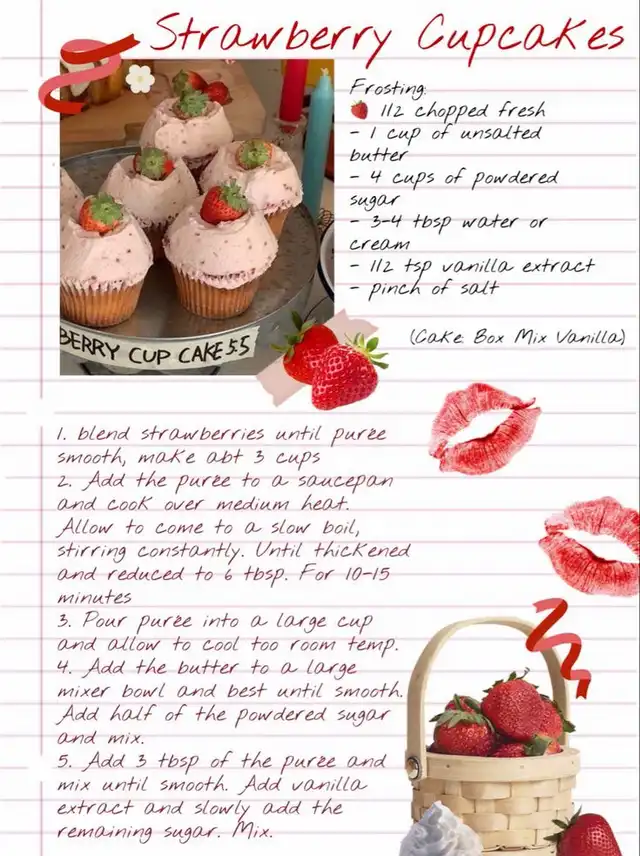 Strawberry Cupcakes
Frosting:
🍓 1/2 chopped fresh
- 1 cup of unsalted
butter
- 4 cups of powdered
sugar
- 3-4 tbsp water or
cream
- 1/2 tsp vanilla extract
- pinch of salt
BERRY CUP CAKE 5.5
(Cake: Box Mix Vanilla)
1. blend strawberries until purée
smooth, make abt 3 cups
2. Add the purée to a saucepan
and cook over medium heat.
Allow to come to a slow boil,
stirring constantly. Until thickened
and reduced to 6 tbsp. For 10-15
minutes
3. Pour purée into a large cup
and allow to cool too room temp.
4. Add the butter to a large
mixer bowl and best until smooth.
Add half of the powdered sugar
and mix.
5. Add 3 tbsp of the purée and
mix until smooth. Add vanilla
extract and slowly add the
remaining sugar. Mix.